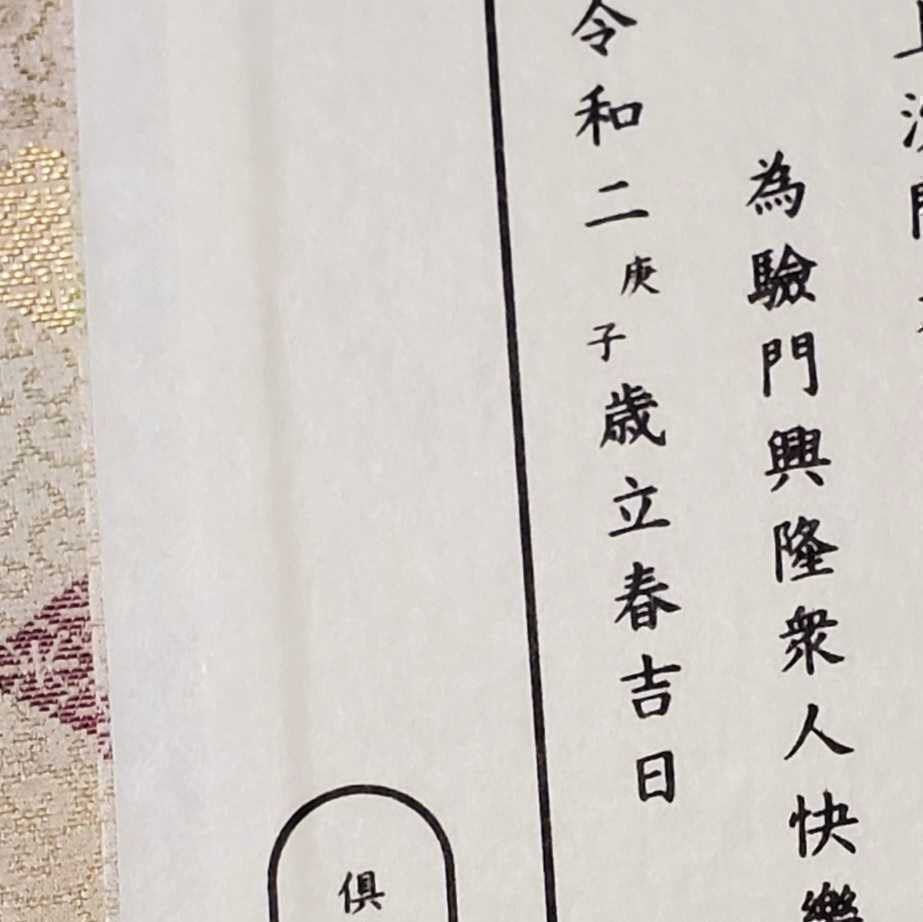 為驗門興隆衆人快樂
令和二庚子歳立春吉日
俱